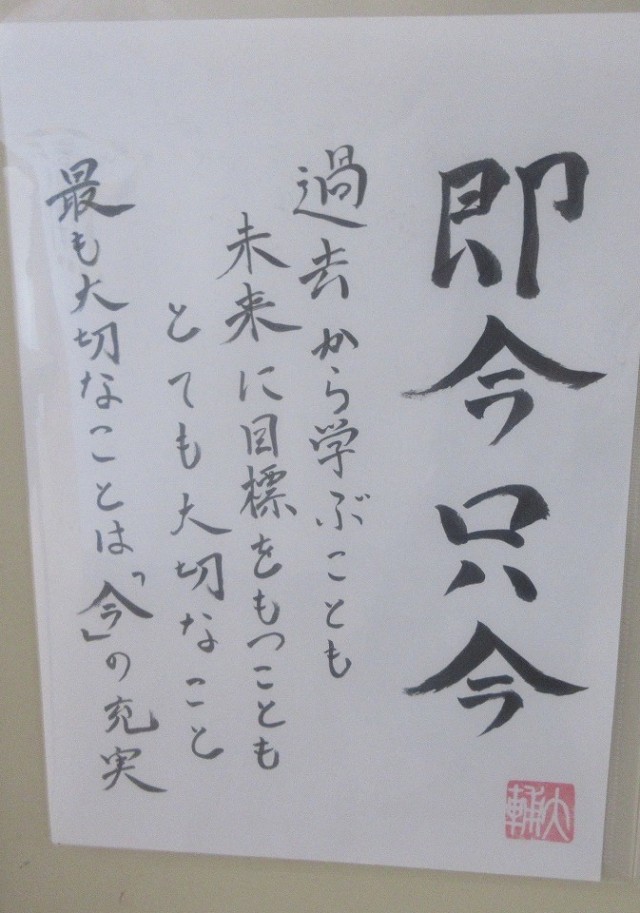 即今只今
過去から学ぶことも
未来に目標をもつことも
とても大切なこと
最も大切なことは「今」の充実
大輔